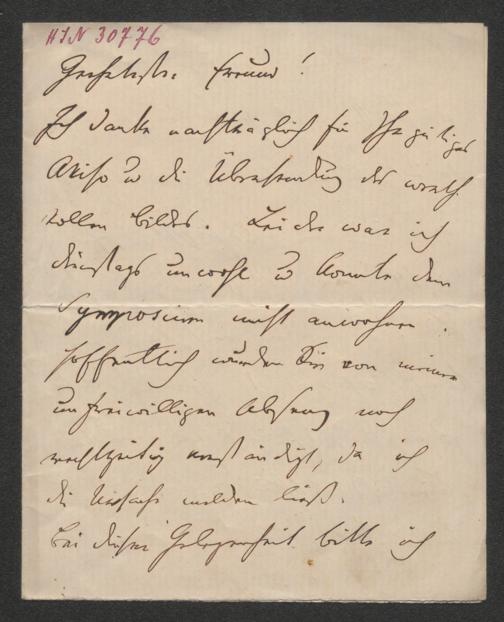 HJN 30776
Geehrtester Freund!
Ich danke nachträglich für Ihr gütiges
Aviso u die Übersendung des werth-
vollen Bildes. Leider war ich
dienstags unwohl u konnte dem
Symposium nicht anwohnen.
Hoffentlich wurden Sie von meiner
unfreiwilligen noch
rechtzeitig verständigt, da ich
die Ursache melden ließ.
Bei dieser Gelegenheit bitte ich